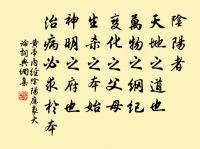 陰陽者
天地之道也
萬物之綱紀
變化之父母
生殺之本始
神明之府也
治病必求於本
黄帝内經陰陽應象大
論詞典網集